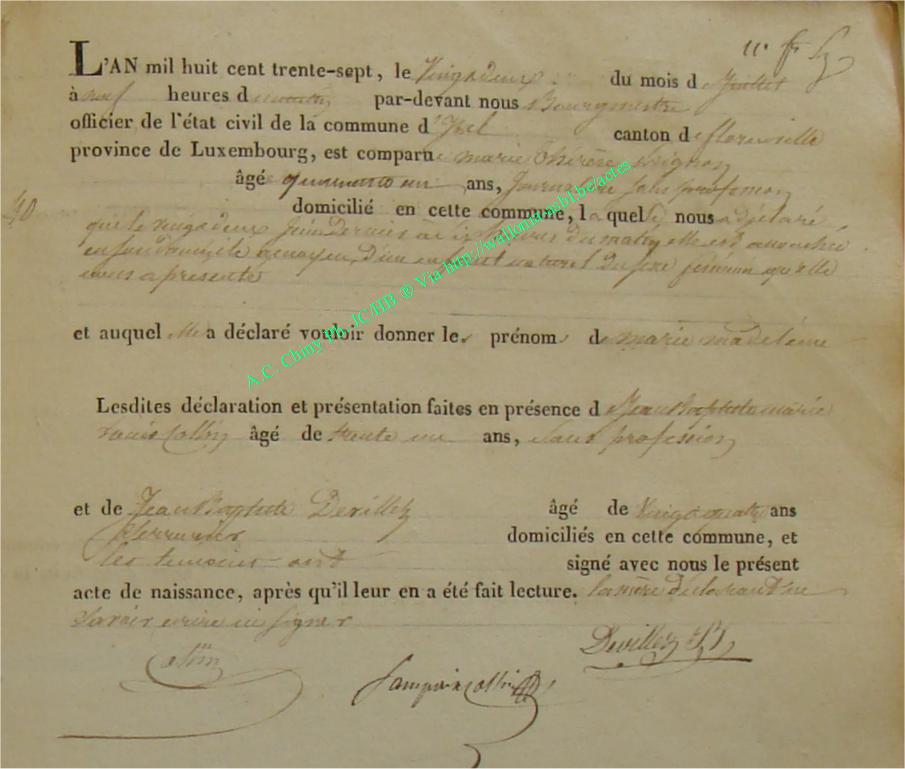 L'AN mil huit cent trente-sept, le vingadeux du mois d e Juillet
à neuf heures d u matin par-devant nous Bourgmestre
officier de l'état civil de la commune d 'Izel canton d e florenville
province de Luxembourg, est comparu e marie thérèse
âgé e quarante un ans, Journalière sans profession
domicilié en cette commune, l a quel le nous a déclaré
40
que le vingadeux Juin dernier à heures du matin elle est accouchée
en son domicile a moyen, d'un enfant naturel du sexe féminin qu'elle
nous a présenté
et auquel elle a déclaré vouloir donner les prénoms de marie madeleine
Lesdites déclaration et présentation faites en présence d e Jean Baptiste marie
Louis Collin âgé de trente un ans, sans profession
et de Jean Baptiste Devillez âgé de vingaquatre ans
Serrurier domiciliés en cette commune, et
les temoins ont signé avec nous le présent
acte de naissance, après qu'il leur en a été fait lecture. la mère déclarant ne
savoir ecrire ni signer
Collin
Devillez
A.C. Chiny Ph. JC/HB ® Via http://wallonia.nsbl.be/actes